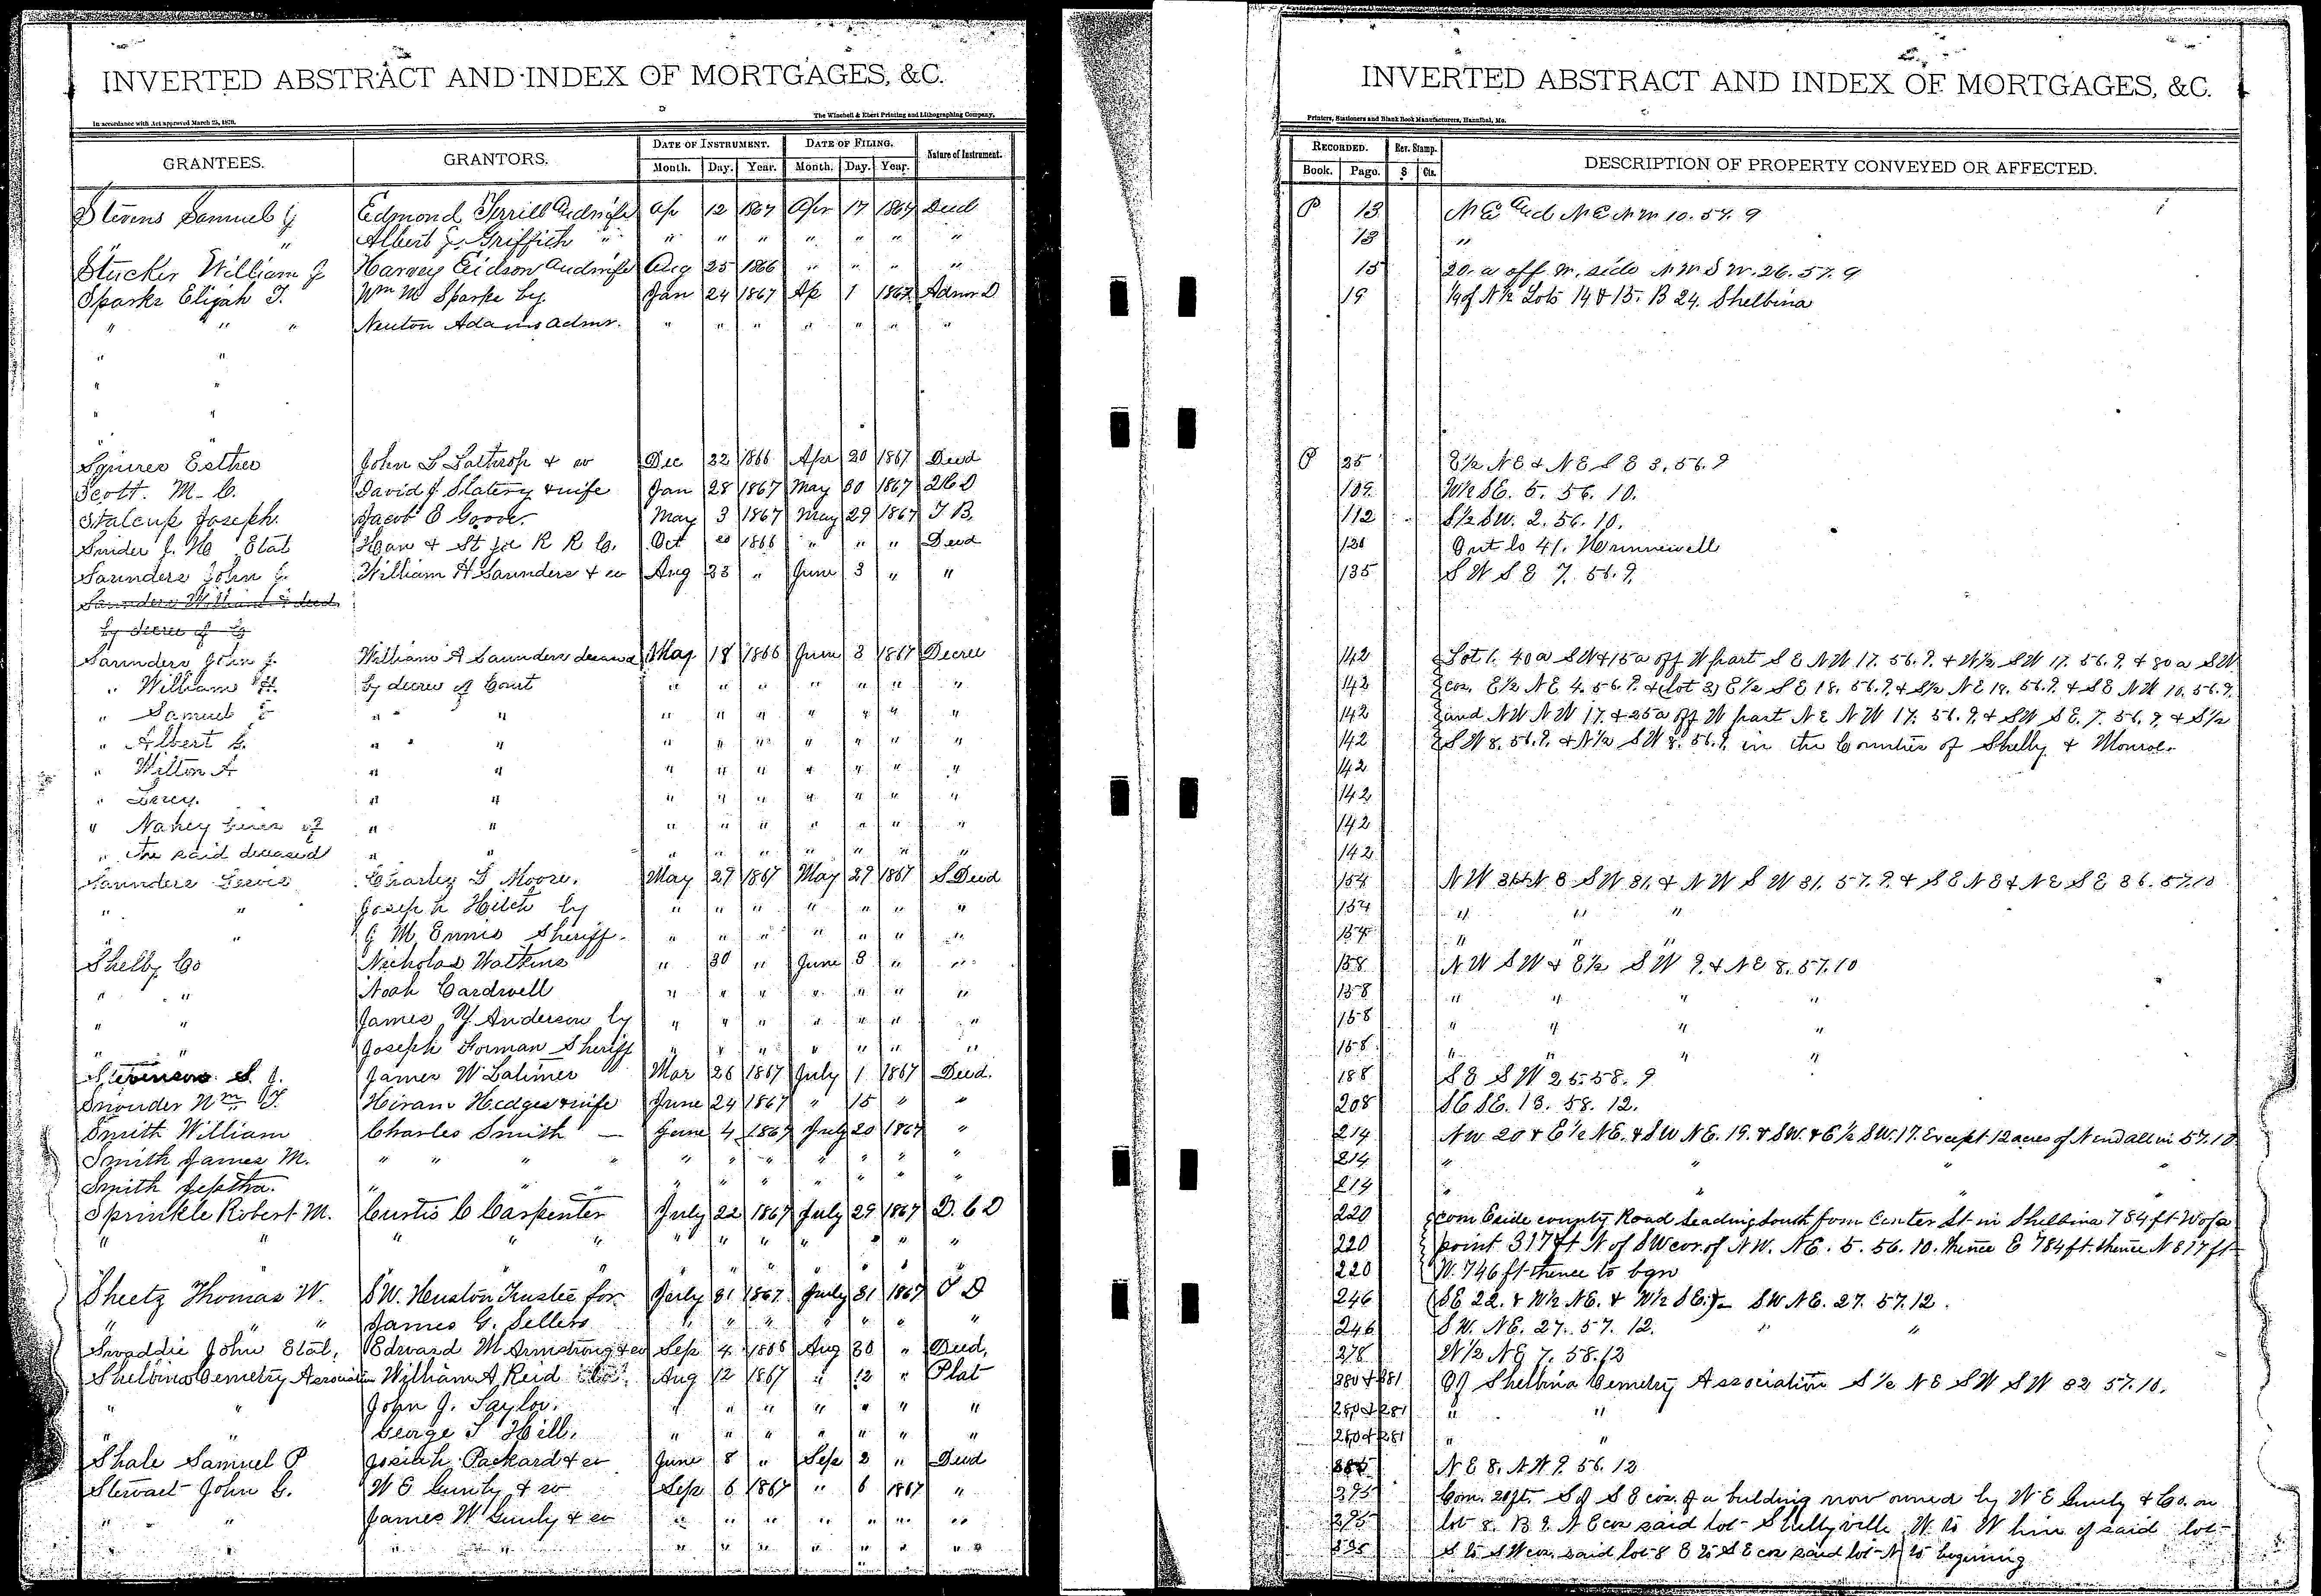 INVERTED ABSTRACT AND INDEX OF MORTGAGES, &C.
In accordance with Act approved March 25, 1870.
The Winchell & Ebert Printing and Lithographing Company,
GRANTEES. GRANTORS. DATE OF INSTRUMENT. DATE OF FILING. Nature of Instrument.
Month. Day. Year. Month. Day. Year.
Stevens Samuel J Edmond Terrill and wife Ap 12 1867 Apr 17 1867 Deed
" Albert G. Griffith " " " " " " " "
Stucker William J Harvey Eidson and wife Aug 25 1866 " " " "
Sparks Elijah T. Wm M Sparks by Jan 24 1867 Ap 1 1867 Admr D
" " " Newton Adams admr. " " " " " " "
" "
" "
" "
"
Squires Esther John L Lathrop & w Dec 22 1866 Apr 20 1867 Deed
Scott. M. C. David J Slatery & wife Jan 28 1867 May 30 1867 2 C D
Stalcup Joseph. Jacob E Goove. May 3 1867 May 29 1867 T B.
Snider J. No Etal Han & St Jo R R Co. Oct 20 1866 " " " Deed
Saunders John J. William H Saunders & w Aug 23 " June 3 " "
Saunders William deed
by decree of
Saunders John J. William A Saunders deceased May 18 1866 June 3 1867 Decree
" William H. by decree of Court " " " " " " "
" Samuel " " " " " " " " "
" Albert C. " " " " " " " " "
" Wilton A " " " " " " " " "
" " " " " " " " " "
" Nancy heirs of " " " " " " " " "
" the said deceased " " " " " " " " "
Saunders Charley L Moore. May 29 1867 May 29 1867 S Deed
" " Joseph Hilch by " " " " " " "
" " G M Ennis Sheriff. " " " " " " "
Shelby Co Nicholas Watkins " 30 " June 3 " "
" " Noah Cardwell " " " " " " "
" " James Y Anderson by " " " " " " "
" " Joseph Forman Sheriff " " " " " " "
Stevenson S. J. James W Latimer Mar 26 1867 July 1 1867 Deed.
Wm T. Hiram Hedges & wife June 24 1867 " 15 " "
Smith William Charles Smith — June 4 1867 July 20 1867 "
Smith James M. " " " " " " " " " " "
Smith Jeptha. " " " " " " " " "
Sprinkle Robert M. Curtis C Carpenter July 22 1867 July 29 1867 D. C D
" " " " " " " " " " " "
" " " " " " " " "
Sheetz Thomas W. S W. Heuston Trustee for July 31 1867 July 31 1867 T D
" " " James G. Sellers " " " " " " "
Swaddie John Etal, Edward M Armstrong & w Sep 4 1866 Aug 30 " Deed,
Shelbina Cemetry Association William A Reid Aug 12 1867 " 12 " Plat
" " John J. Taylor. " " " " " " "
" " George T Hill. " " " " " " "
Shale Samuel P Josiah Packard & w June 8 " Sep 2 " Deed
Stewart John C. W E Gunby & w Sep 6 1867 " 6 1867 "
" " James W Gunby & w " " " " " " "
" " " " " " " " " " "
INVERTED ABSTRACT AND INDEX OF MORTGAGES, &C.
Printers, Stationers and Blank Book Manufacturers, Hannibal, Mo.
RECORDED. Rev. Stamp. DESCRIPTION OF PROPERTY CONVEYED OR AFFECTED.
Book. Page. $ Cts.
P 13 N E N E N W 10. 57. 9
13 "
15 20. a off W. side N W S W. 26. 57. 9
19 1/9 of N 1/2 Lots 14 & 15. B 24. Shelbina
P 25 E 1/2 N E & N E S E 3. 56. 9
109 W 1/2 SE. 5. 56. 10.
112 S 1/2 SW. 2. 56. 10.
131 Out lo 41. Hunnewell
135 S W S E 7. 56. 9.
142 Lot 1. 40 a SW & 15 a off W part S E N W 17. 56. 9. & W 1/2 S W 17. 56. 9. & 80 a S W
142 cor. E 1/2 N E 4. 56. 9. & (lot 3) E 1/2 S E 18. 56. 9. & S 1/2 N E 18. 56. 9. & S E N W 10. 56. 9.
142 and N W N W 17. & 25 a off W part N E N W 17. 56. 9. & S W S E. 7. 56. 9. & S 1/2
142 S W 8. 56. 9. & N 1/2 S W 8. 56. 9. in the Counties of Shelby & Monroe.
142
142
142
142
154 N W 31 & N E S W 31. & N W S W 31. 57. 9. & S E N E & N E S E 36. 57. 10
154 " " "
154 " " "
158 N W S W & E 1/2 S W 9. & N E 8. 57. 10
158 " " " "
158 " " " "
158 " " " "
188 S E S W 25. 58. 9
208 S E S E. 13. 58. 12.
214 N W 20 & E 1/2 N E. & S W N E. 19. & S W. & E 1/2 S W. 17. Except 12 acres of N end all in 57. 10
214 " " " "
214 " " "
220 com E side county Road leading south from Center St in Shelbina 784 ft W of a
220 point 317 ft N of S W cor. of N W. N E. 5. 56. 10. thence E 784 ft. thence N 817 ft
220 W. 746 ft thence to bgn
246 S E 22. & W 1/2 N E. & W 1/2 S E. & S W N E. 27. 57. 12.
246 S W. N E. 27. 57. 12. " "
278 W 1/2 N E 7. 58. 12
280 & 281 Of Shelbina Cemetry Association S 1/2 N E S W S W 32 57. 10.
280 & 281 " "
280 & 281 " "
N E 8. N W 9. 56. 12
395 Com. 20 ft. S of S E cor. of a building now owned by W E Gunby & Co. on
395 lot 8. B 9. N E cor said lot - Shelbyville W. to W line of said lot -
395 S to S W cor. said lot 8 E to S E cor said lot - N to begining